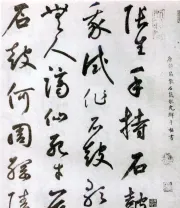 張生手持石鼓
我試作石鼓歌
無人謫仙死才
石鼓何周綱陵